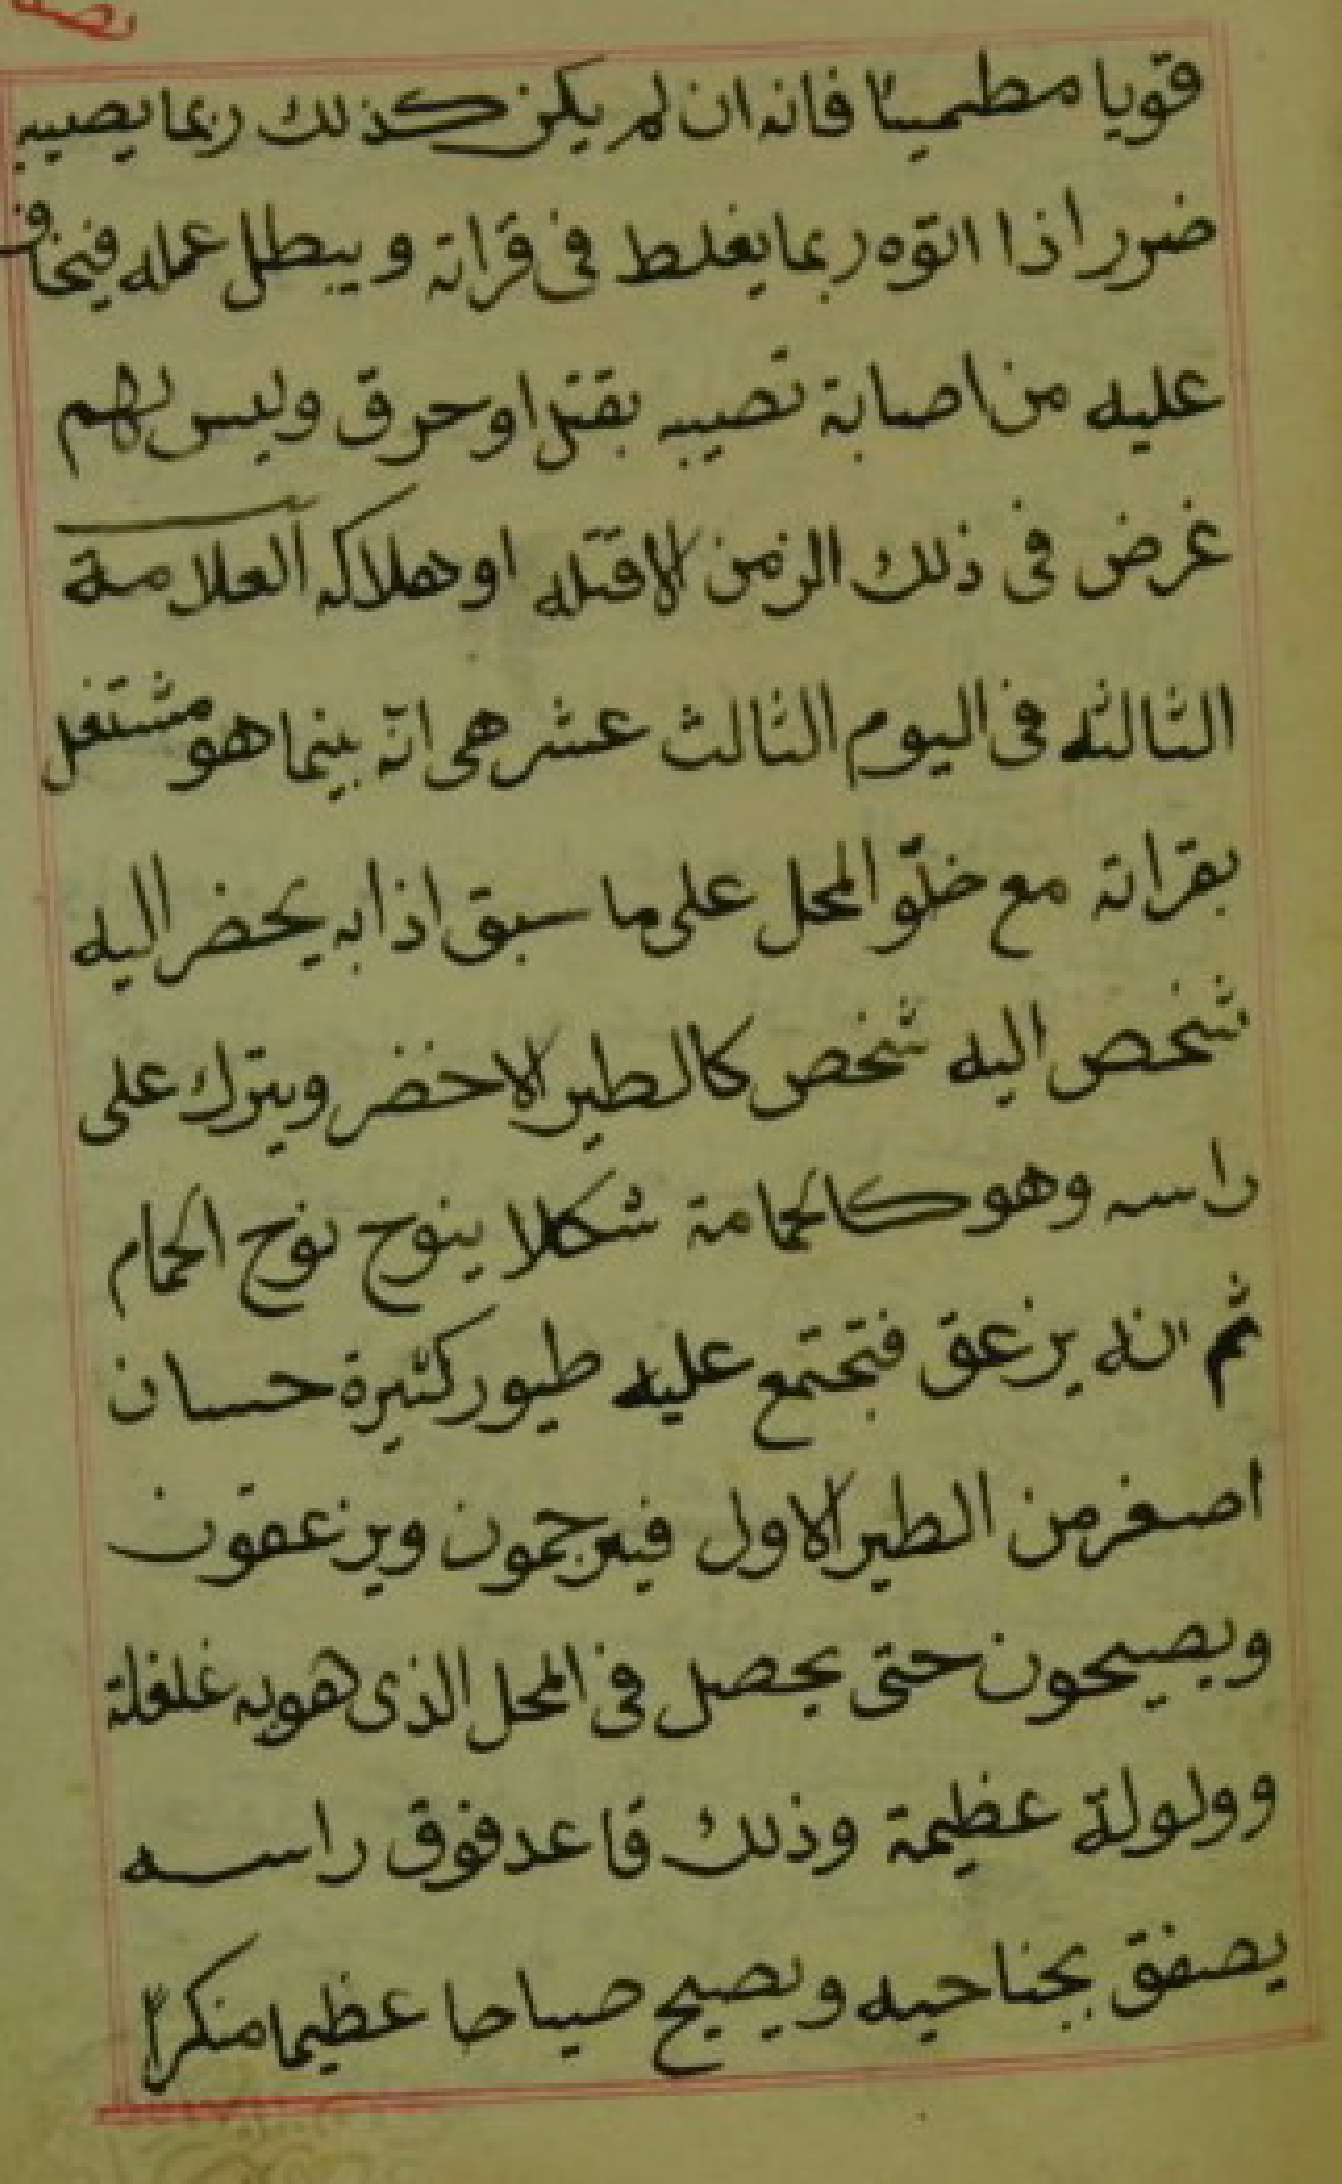 قويا مطمينا فانه ان لم يكن كذلك ربما يصيبه
ضرر اذا اتوه ربما يغلط فى قراته ويبطل عمله فيخاف
عليه من اصابة تصيبه بقتل او حرق وليس لهم
غرض فى ذلك الزمن الا قتله او هلاكه العلامة
الثالثه فى اليوم الثالث عشر هى انه بينما هو مشتغل
بقراته مع خلو المحل على ما سبق اذا به يحضر اليه
شخص اليه شخص كالطير الاخضر ويترك على
راسه وهو كالحمامة شكلا ينوح نوح الحمام
ثم انه يزعق فتجتمع عليه طيور كثيرة حسان
اصغر من الطير الاول فيرجمون ويزعقون
ويصيحون حتى يحصل فى المحل الذى هو به غلغلة
وولولة عظيمة وذلك قاعد فوق راسه
يصفق بجناحيه ويصيح صياحا عظيما منكرا